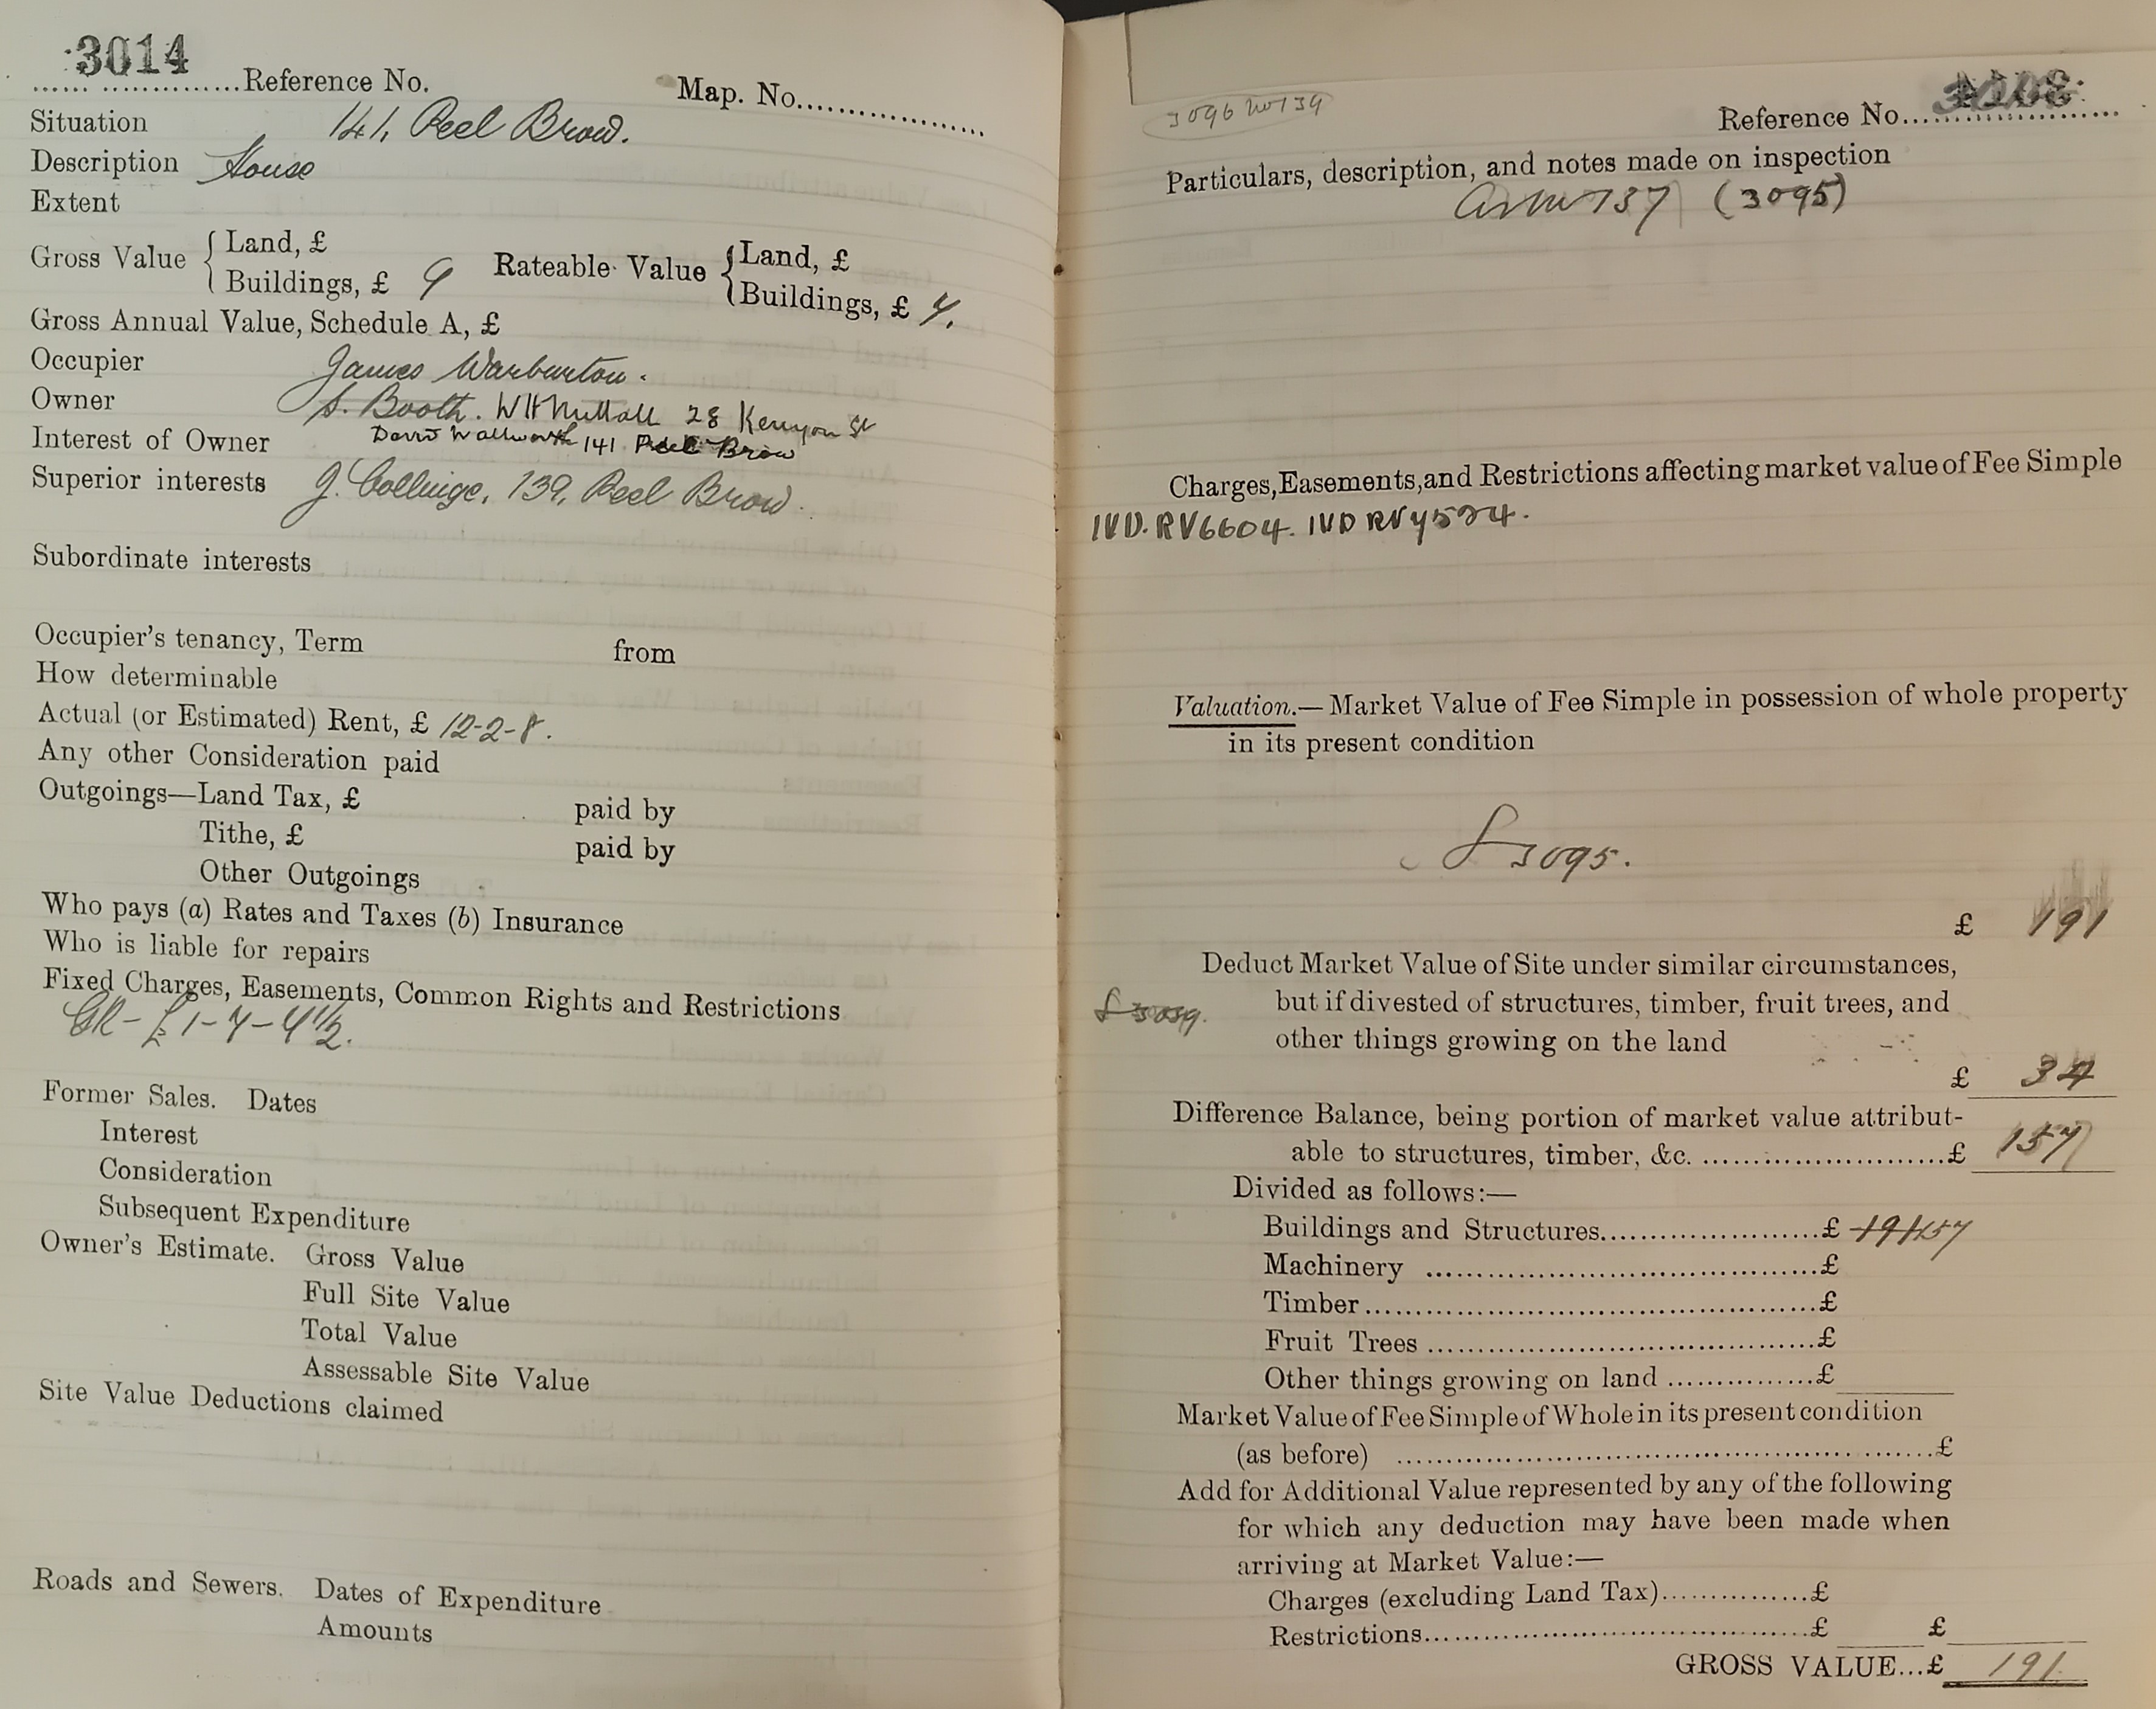 3014 Reference No. Map. No.
Situation 141, Peel Brow.
Description House
Extent
Gross Value { Land, £
Buildings, £ 9 Rateable Value { Land, £
Buildings, £ 7.
Gross Annual Value, Schedule A, £
Occupier James Warburton.
Owner S. Booth. WH Nuttall 28 Kenyon St
Interest of Owner David Wallwork 141 Peel Brow
Superior interests J. Collinge, 139, Peel Brow.
Subordinate interests
Occupier's tenancy, Term from
How determinable
Actual (or Estimated) Rent, £ 12-2-8.
Any other Consideration paid
Outgoings—Land Tax, £ paid by
Tithe, £ paid by
Other Outgoings
Who pays (a) Rates and Taxes (b) Insurance
Who is liable for repairs
Fixed Charges, Easements, Common Rights and Restrictions
GR - £1-7-4½.
Former Sales. Dates
Interest
Consideration
Subsequent Expenditure
Owner's Estimate. Gross Value
Full Site Value
Total Value
Assessable Site Value
Site Value Deductions claimed
Roads and Sewers. Dates of Expenditure
Amounts
3096 No 139
Reference No.
Particulars, description, and notes made on inspection
as No 137 (3095)
Charges, Easements, and Restrictions affecting market value of Fee Simple
IVD. RV6604. IVD RV4574.
Valuation.— Market Value of Fee Simple in possession of whole property
in its present condition
£ 3095.
£ 191
Deduct Market Value of Site under similar circumstances,
but if divested of structures, timber, fruit trees, and
other things growing on the land
£ 34
Difference Balance, being portion of market value attribut-
able to structures, timber, &c. £ 157
Divided as follows:—
Buildings and Structures £ 191 157
Machinery £
Timber £
Fruit Trees £
Other things growing on land £
Market Value of Fee Simple of Whole in its present condition
(as before) £
Add for Additional Value represented by any of the following
for which any deduction may have been made when
arriving at Market Value:—
Charges (excluding Land Tax) £
Restrictions £ £
GROSS VALUE...£ 191